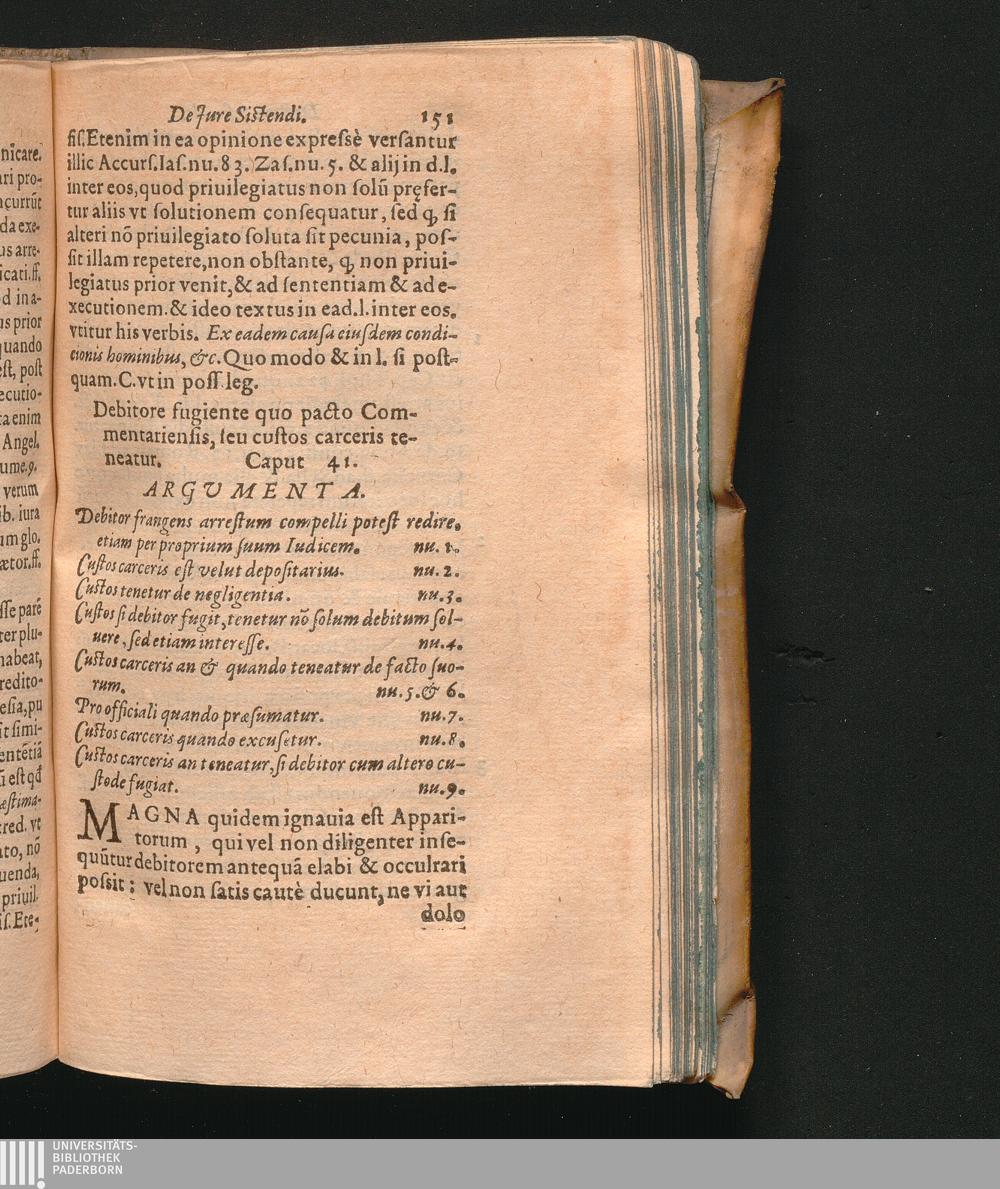 nicare.
ari pro-
ncurrūt
da exe-
us arre-
icati.ff.
d in a-
us prior
quando
est, post
ecutio-
ta enim
Angel.
ume.9.
verum
ib. iura
um glo.
ætor.ff.
sse parē
ter plu-
habeat,
redito-
esia, pu
it simi-
entētiā
est qđ
æstima-
cred. vt
ato, nō
uenda,
priuil.
is. Ete-
De Jure Sistendi. 151
sis. Etenim in ea opinione expressè versantur
illic Accurs. Ias. nu. 83. Zas. nu. 5. & alij in d. l.
inter eos, quod priuilegiatus non solū pręfer-
tur aliis vt solutionem consequatur, sed q, si
alteri nō priuilegiato soluta sit pecunia, pos-
sit illam repetere, non obstante, q, non priui-
legiatus prior venit, & ad sententiam & ad e-
xecutionem. & ideo textus in ead. l. inter eos.
vtitur his verbis. Ex eadem causa eiusdem condi-
cionis hominibus, &c. Quo modo & in l. si post-
quam. C. vt in poss. leg.
Debitore fugiente quo pacto Com-
mentariensis, seu custos carceris te-
neatur. Caput 41.
ARGVMENTA.
Debitor frangens arrestum compelli potest redire.
etiam per proprium suum Iudicem. nu. 1.
Custos carceris est velut depositarius. nu. 2.
Custos tenetur de negligentia. nu. 3.
Custos si debitor fugit, tenetur nō solum debitum sol-
uere, sed etiam interesse. nu. 4.
Custos carceris an & quando teneatur de facto suo-
rum. nu. 5. & 6.
Pro officiali quando præsumatur. nu. 7.
Custos carceris quando excusetur. nu. 8.
Custos carceris an teneatur, si debitor cum altero cu-
stode fugiat. nu. 9.
MAGNA quidem ignauia est Appari-
torum, qui vel non diligenter inse-
quūtur debitorem antequā elabi & occulrari
possit: vel non satis cautè ducunt, ne vi aut
dolo
UNIVERSITÄTS-
BIBLIOTHEK
PADERBORN